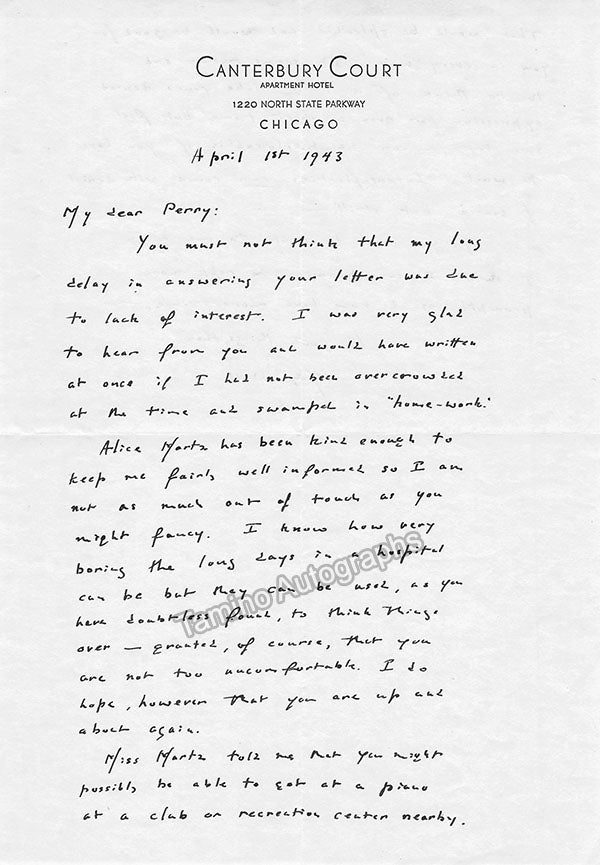 CANTERBURY COURT
APARTMENT HOTEL
1220 NORTH STATE PARKWAY
CHICAGO
April 1st 1943
My dear Perry:
You must not think that my long
delay in answering your letter was due
to lack of interest. I was very glad
to hear from you and would have written
at once if I had not been overcrowded
at the time and swamped in "home-work."
Alice Martz has been kind enough to
keep me fairly well informed so I am
not as much out of touch as you
might fancy. I know how very
boring the long days in a hospital
can be but they can be used, as you
have doubtless found, to think things
over — granted, of course, that you
are not too uncomfortable. I do
hope, however that you are up and
about again.
Miss Martz told me that you might
possibly be able to get at a piano
at a club or recreation center nearby.
Tamino Autographs